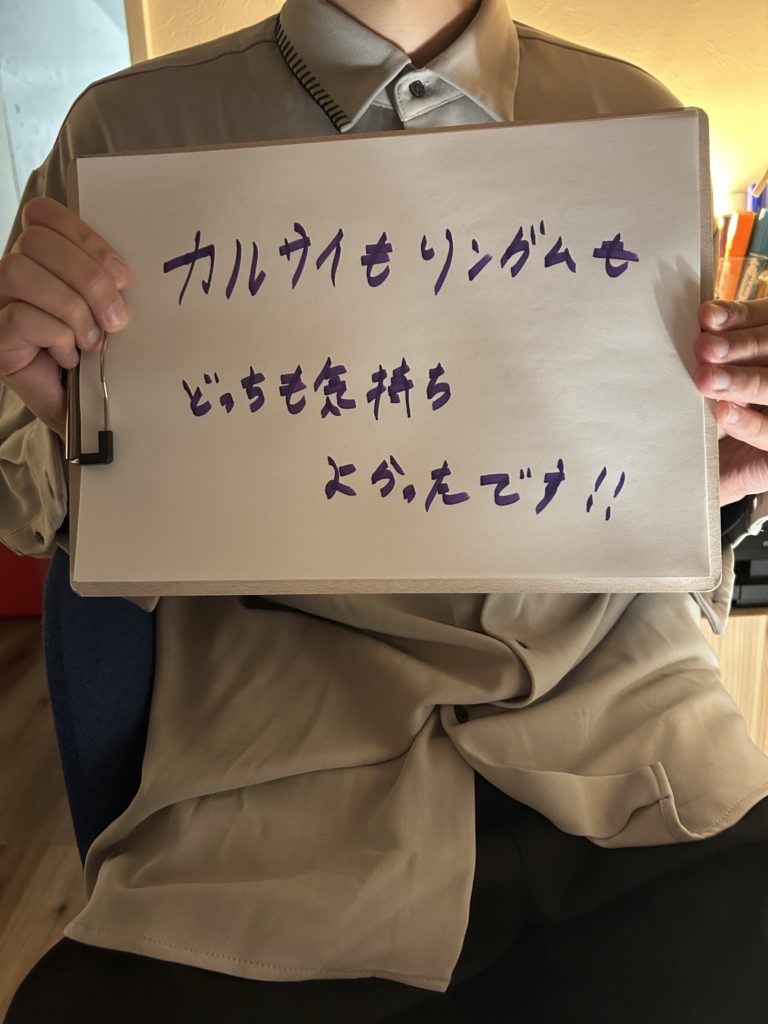 カルサイもリンガムも
どっちも気持ち
よかったです!!